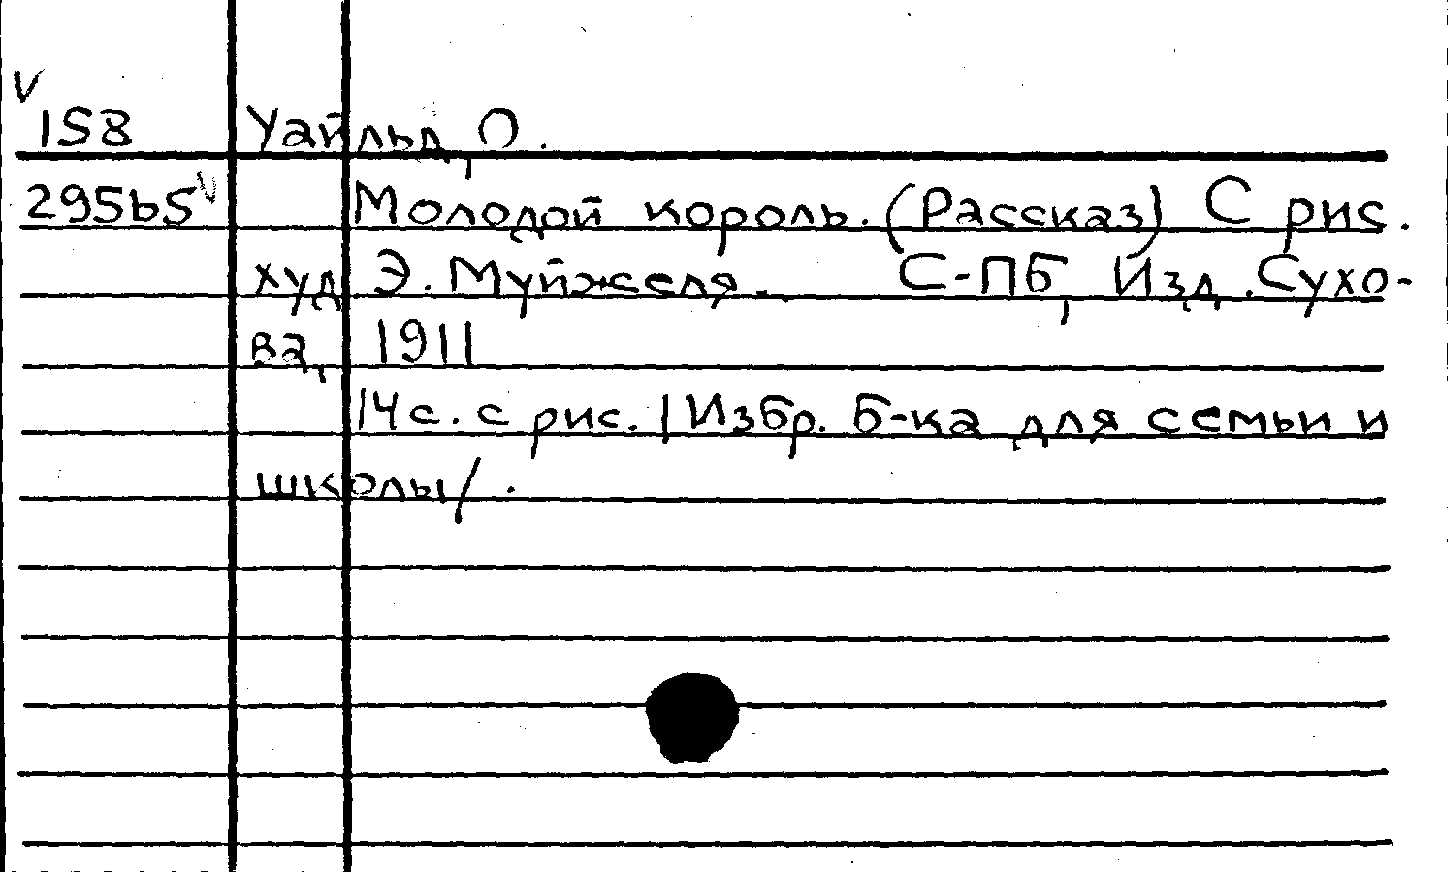 V
158 Уайльд, О.
295b5 V Молодой король. (Рассказ) С рис.
худ Э. Муйжеля. С-ПБ, Изд. Сухо-
ва, 1911
14 с. с рис. /Избр. Б-ка для семьи и
школы/.